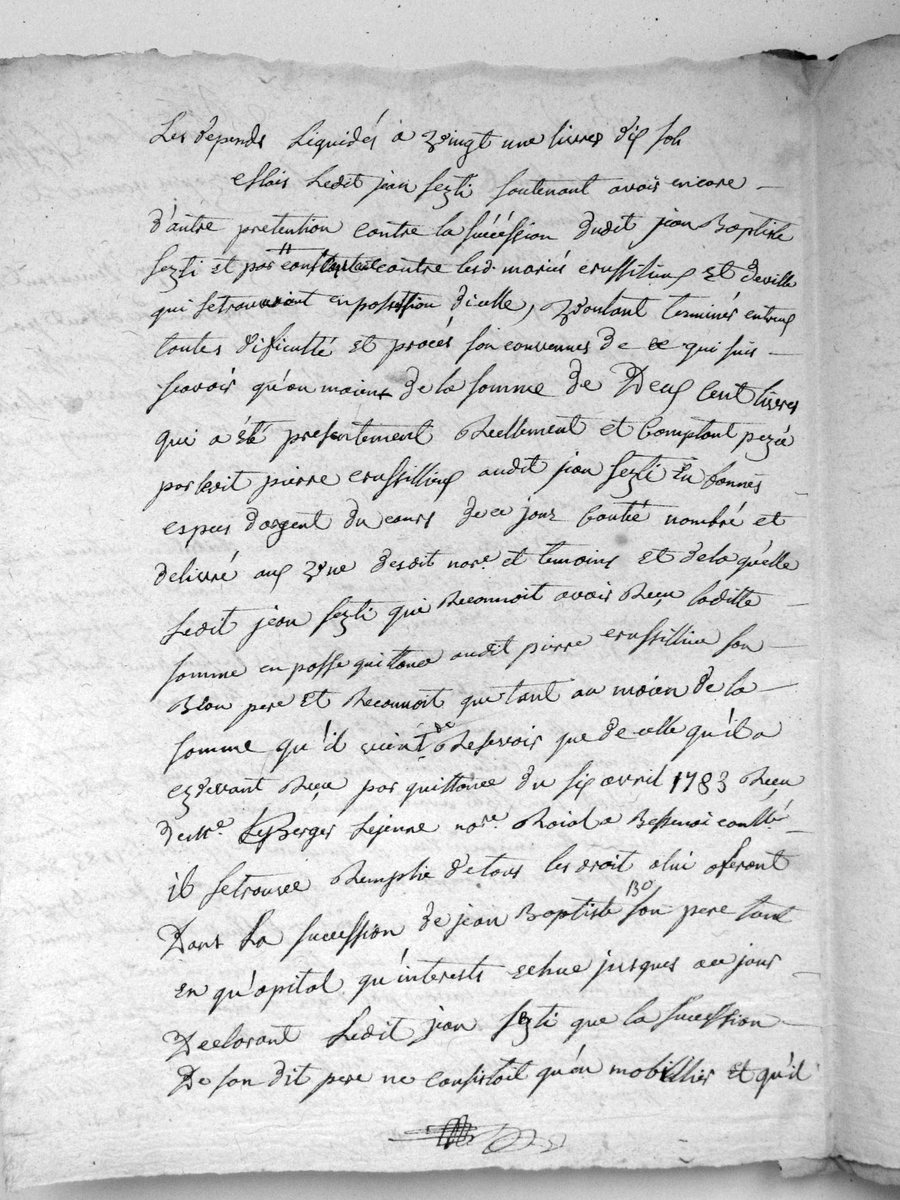 Les depends Liquidés a vingt une livres dix sols
Ledit jean sezti soutenant avoir encore
d'autre pretention contre la succéssion dudit jean Baptiste
sezti et par contre lesd. mariés crussilieux et deville
qui se trouvoient en possission dicelle, voulant terminér entreux
toutes dificulté et procés son convennes de ce qui suis
scavoir qu'au moien de la somme de Deux cent livres
qui a été presentement Reellement et comptant peyée
par ledit pierre crussillieux audit jean sezti En bonnes
espces d'argent du cours de ce jour Contté nombré et
delivré aux vue desdit nore. et temoins et de laquelle
Ledit jean sezti qui Reconnoit avoir Reçu laditte
somme en passe quittance audit pierre crussillieux son
Beau pere et Reconnoit que tant au moien de la
somme qu'il vient de Resevoir que de celle qu'il a
cy devant Reçu par quittance du six avril 1783 Reçu
de Me. Berger Lejeune nore. Roial a Bessenai conttlé
il se trouve Remplie de tous les droit a lui aferant
Dans La succession de jean Baptiste son Bo pere tant
en qu'apital qu'interests echue jusques ace jour
Declarant Ledit jean sezti que la succession
De son dit pere ne consistoit qu'en mobillier et qu'il